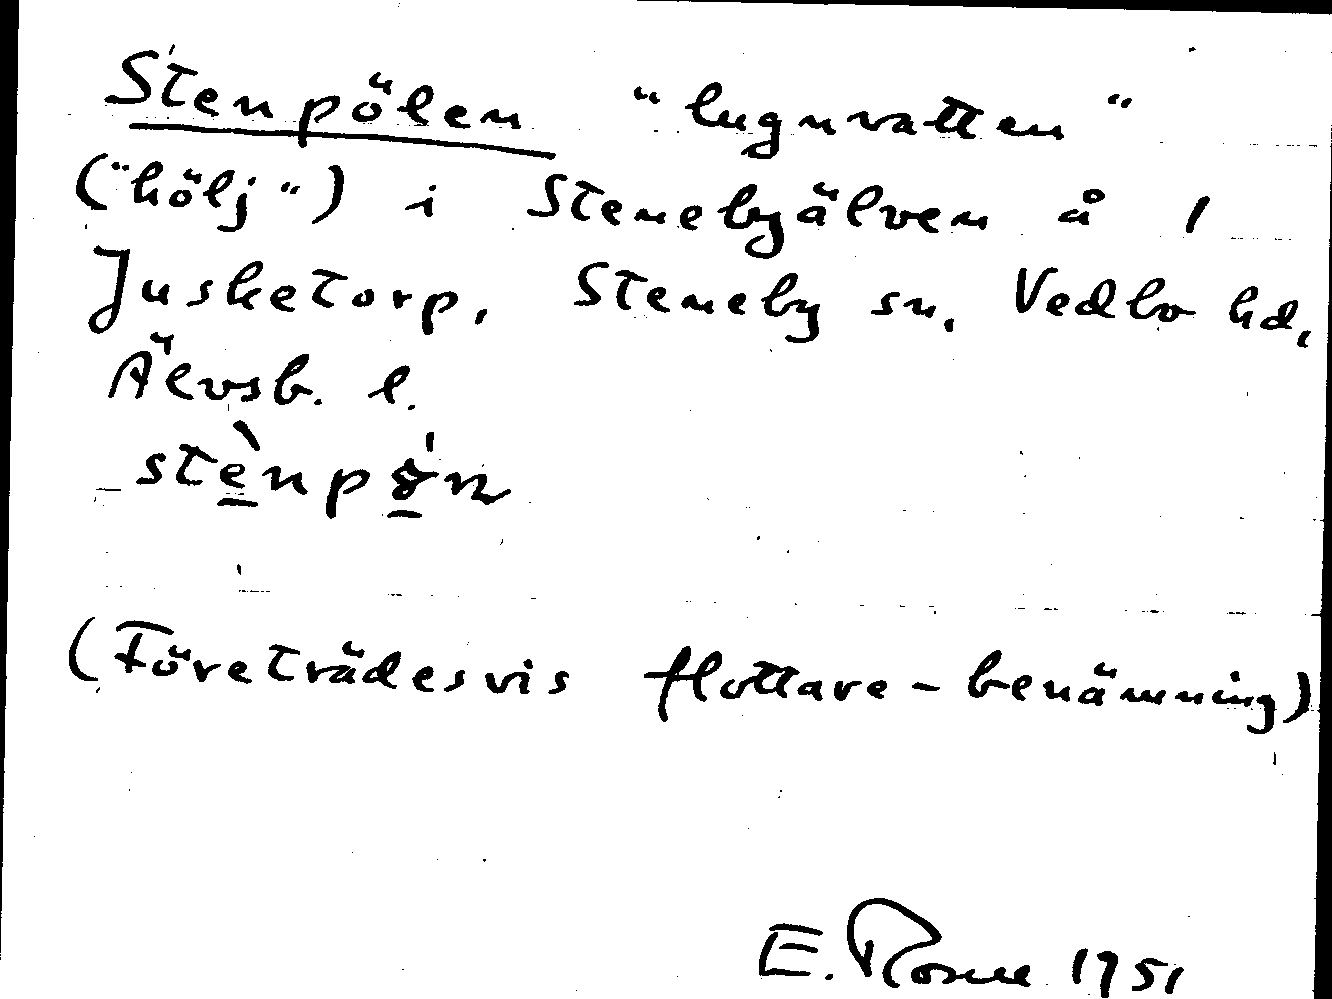 Stenpölen "lugnvatten"
("hölj") i Stenebyälven å 1
Jusketorp, Steneby sn, Vedbo hd,
Älvsb. l.
(Företrädesvis flottare-benämning)
E. 1951